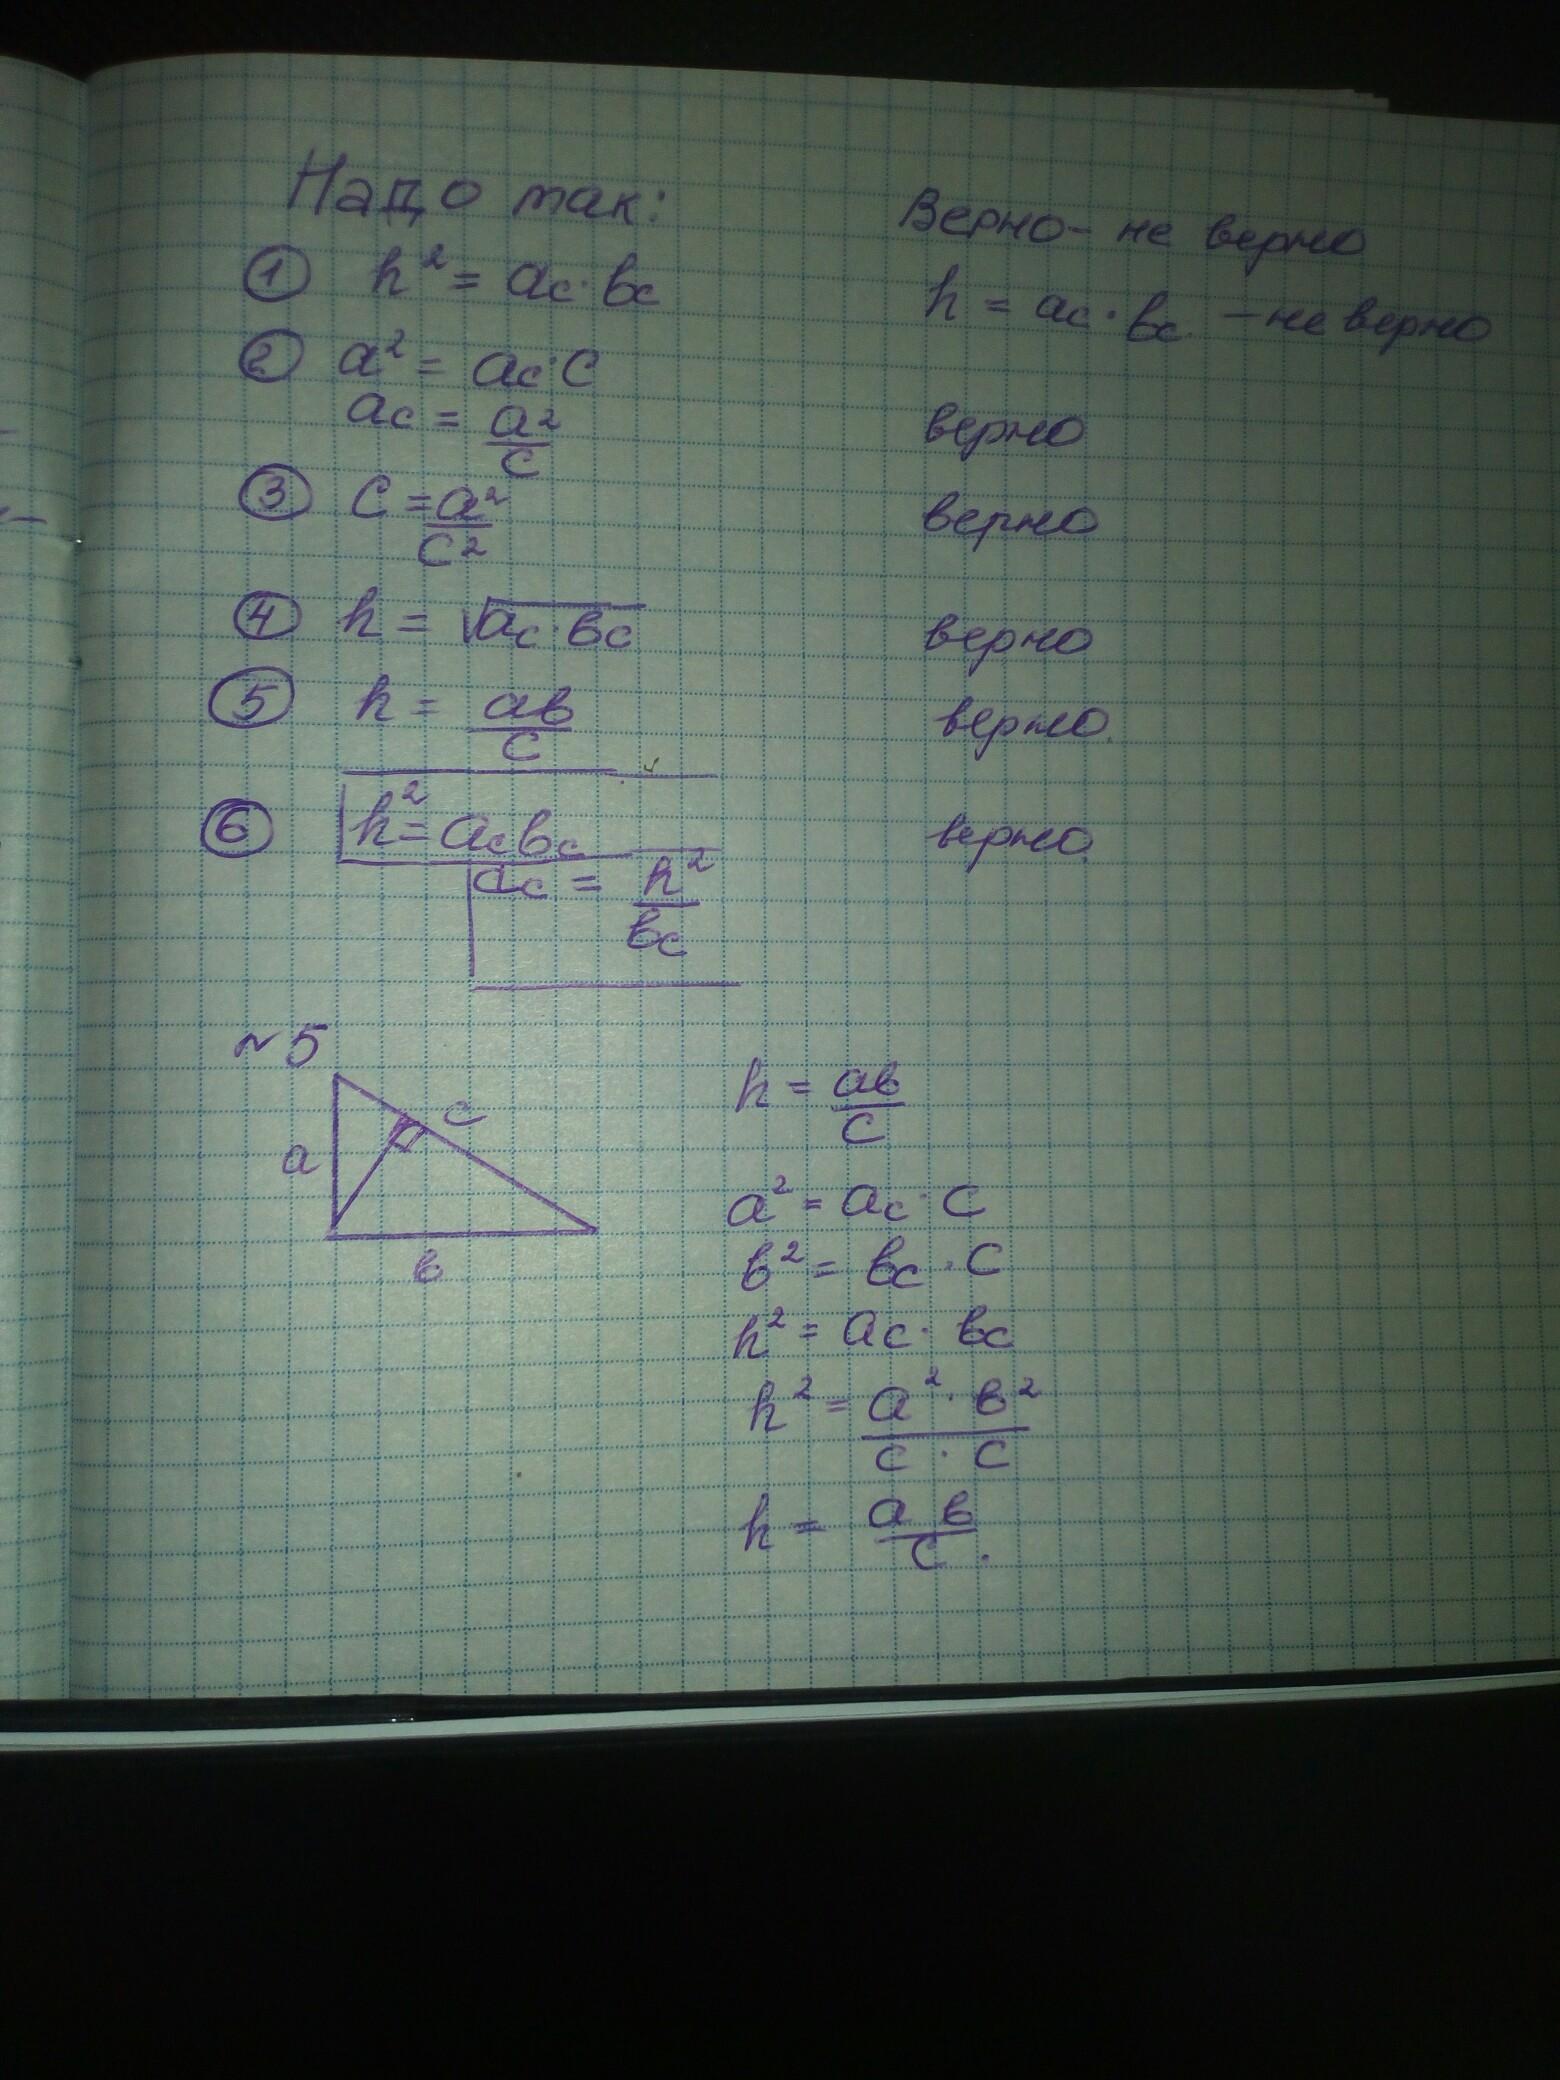 Надо так: Верно - не верно
① h² = ac · bc h = ac · bc. - не верно
② a² = ac · C
ac = a²/C верно
③ C = a²/C² верно
④ h = √ac · bc верно
⑤ h = ab/C верно.
⑥ h² = acbc верно.
ac = h²/bc
~5
a c
в
h = aв/C
a² = ac · C
в² = вc · C
h² = ac · вc
h² = a² · в²/C · C
h = a в/C.